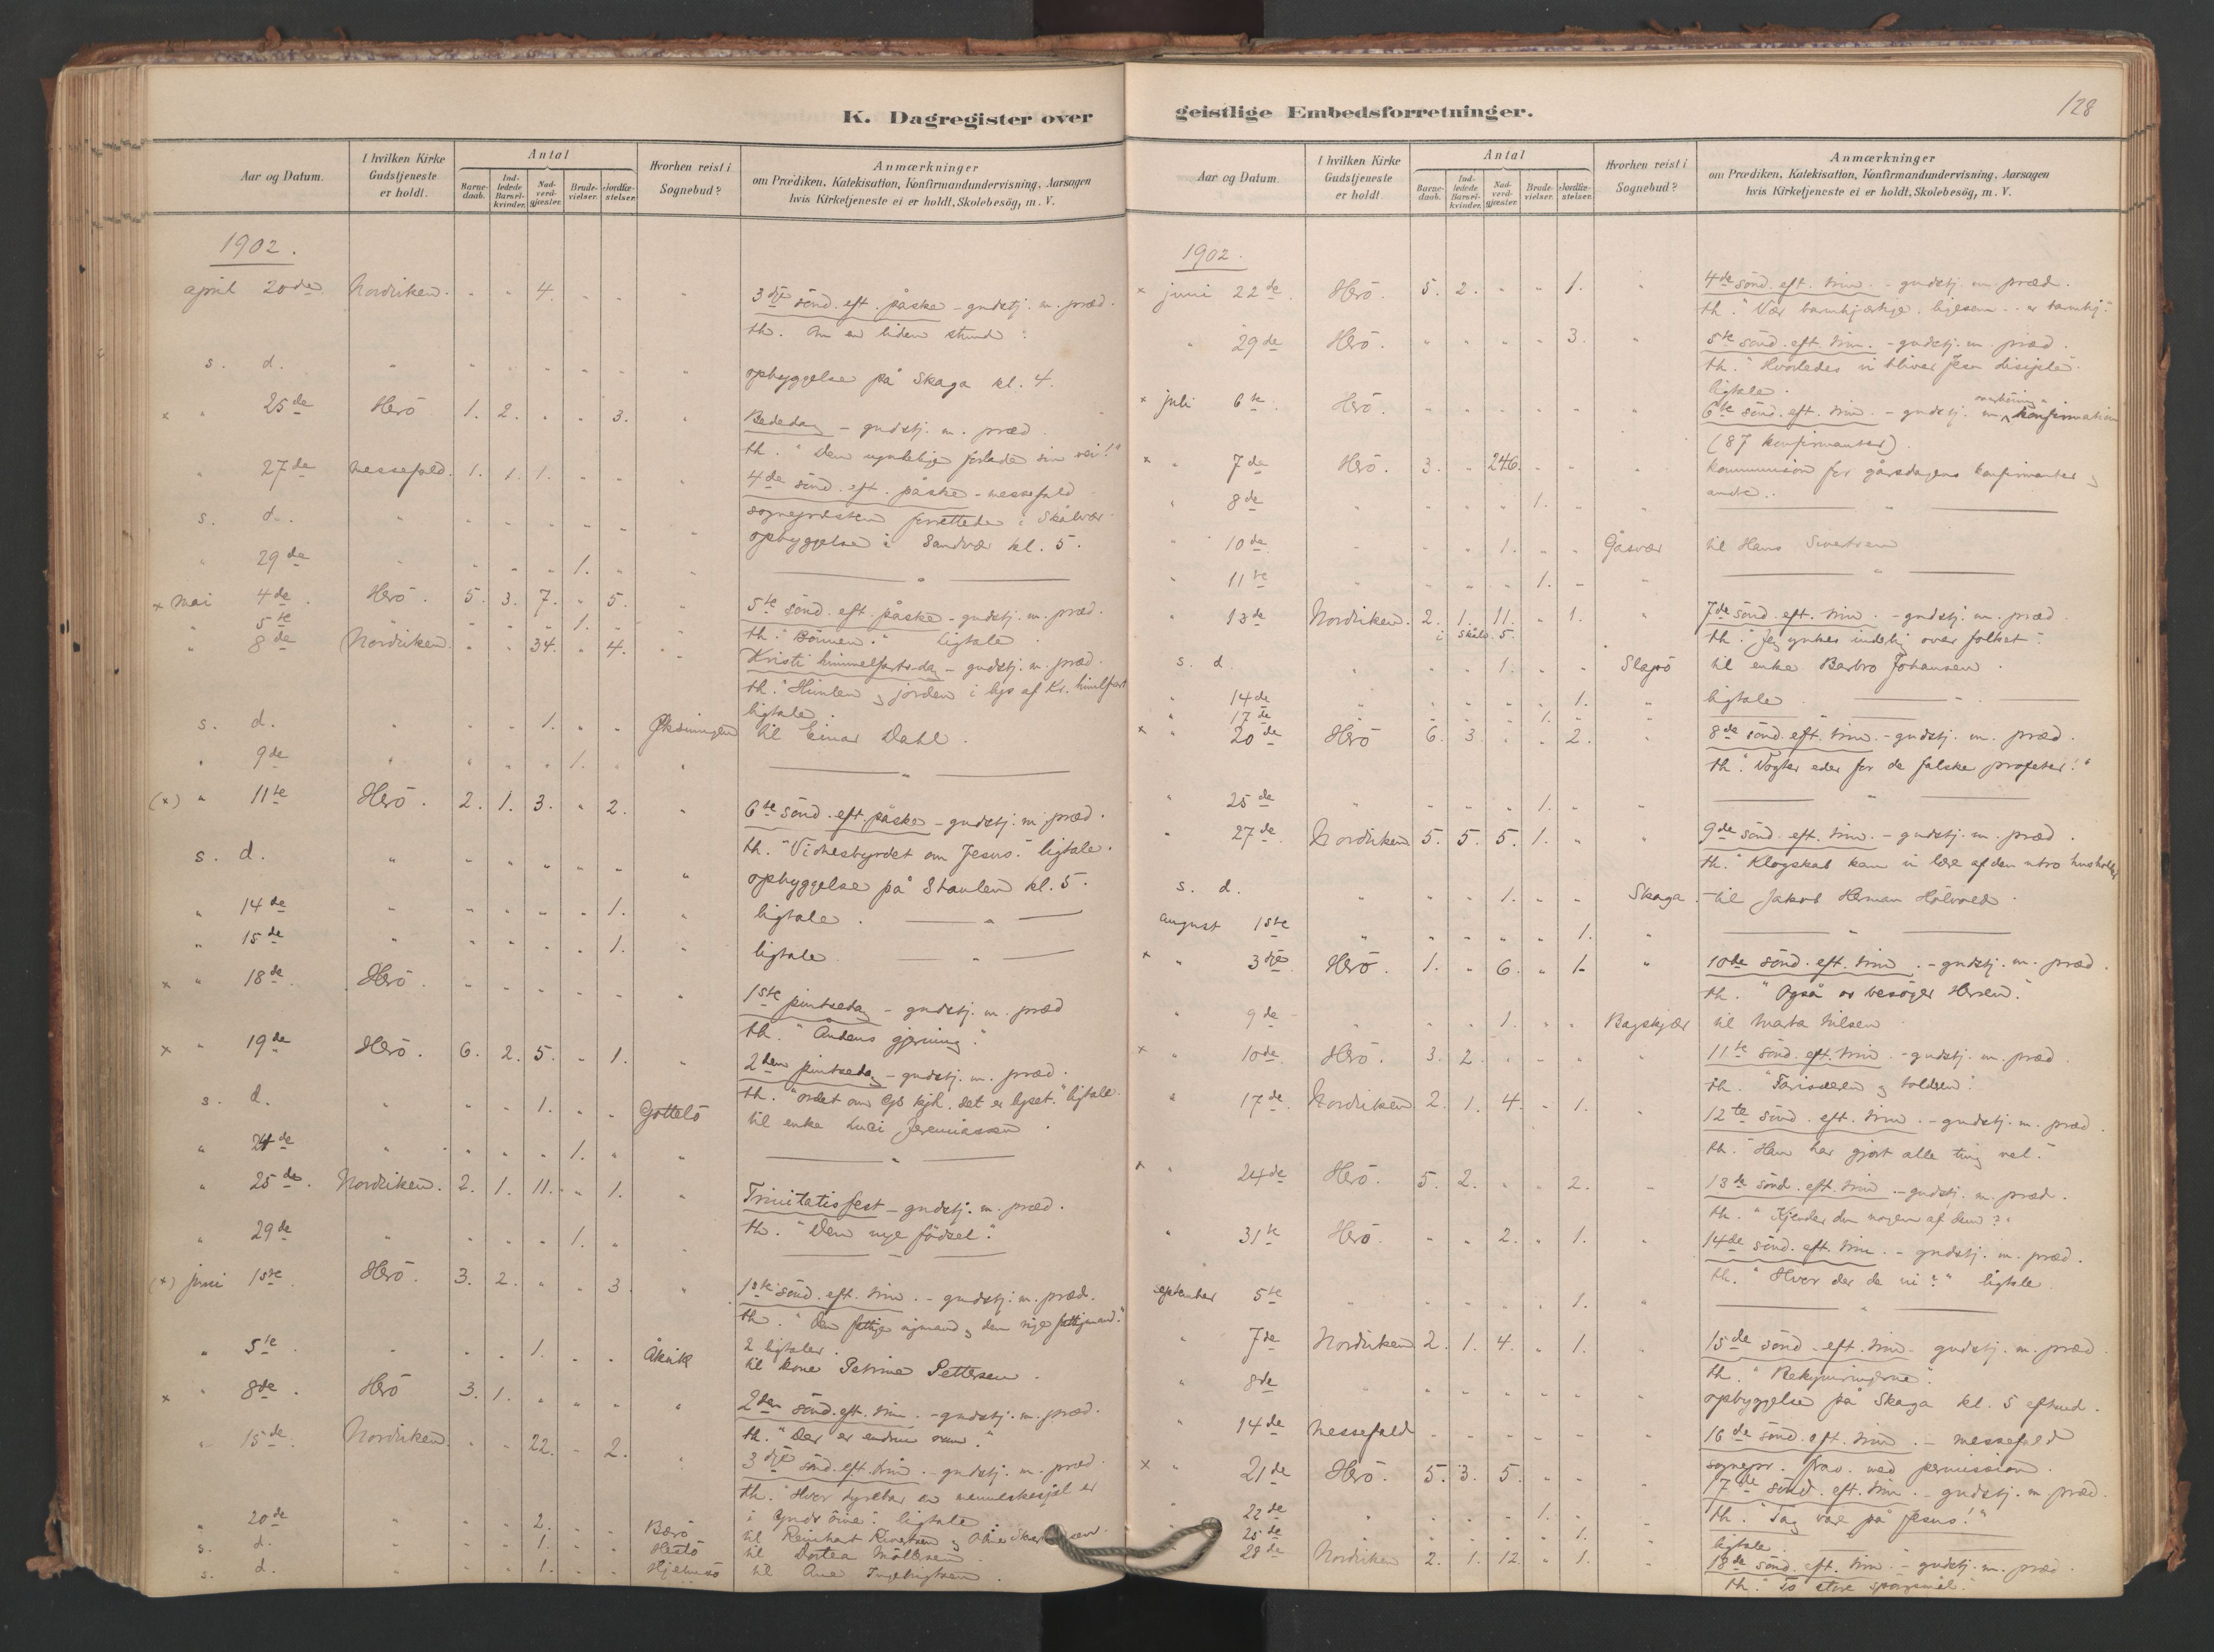 K. Dagregister over
Aar og Datum.
I hvilken Kirke Gudstjeneste er holdt.
Antal
Barnedaab.
Indledede Barselkvinder.
Nadverdgjæster.
Brudevielser.
Jordfæstelser.
Hvorhen reist i Sognebud?
Anmærkninger
om Prædiken, Katekisation, Konfirmandundervisning, Aarsagen
hvis Kirketjeneste ei er holdt, Skolebesög, m. V.
1902.
april 20de Nordviken. " " 4. " " " 3dje sönd. eft. påske - gudstj. m. præd.
th. Om en liden stund:
s. d. " " " " " " " opbyggelse på Skaga kl. 4.
x " 25de Herö 1. 2. " " 3. " Bededag - gudstj. m. præd.
th. "Den ugudelige forlade sin vei!"
" 27de messefald. 1. 1. 1. " " " 4de sönd. eft. påske - messefald
sognepresten forrettede i Skålvær
s. d. " " " " " " " opbyggelse i Sandvær kl. 5.
" 29de " " " " 1. " "
x mai 4de. Herö. 5. 3. 7. " 5. " 5te sönd. eft. påske - gudstj. m. præd.
" 5te " " " " 1. " " th. "Bönnen." ligtale
" 8de Nordviken. " " 34. " 4. " Kristi himmelfarts-dag - gudstj. m. præd.
th. "Himlen og jorden i lys af Kr. himlfart
ligtale.
s. d. " " " 1. " " Øksningen til Einar Dahl.
" 9de " " " " 1. " "
(x) " 11te Herö. 2. 1. 3. " 2. " 6te sönd. eft. påske - gudstj. m. præd.
th. "Vidnesbyrdet om Jesus." ligtale.
s. d. " " " " " " " opbyggelse på Staulen kl. 5.
" 14de " " " " " 1. " ligtale.
" 15de " " " " " 1. " ligtale
x " 18de. Herö. " " " " " " 1ste pintsedag - gudstj. m. præd
th. "Åndens gjerning."
x " 19de Herö. 6. 2. 5. " 1. " 2den pintsedag - gudstj. m. præd.
th. "ordet om Gs kjh. det er lyset." ligtale
s. d. " " " 1. " " Gåttelö til enke Luci Jeremiassen.
" 24de " " " " 1. " "
" 25de. Nordviken. 2. 1. 11. " 1. " Trinitatisfest - gudstj. m. præd.
th. "Den nye födsel."
" 29de " " " " 1. " "
(x) juni 1ste. Herö. 3. 2. " " 3 " 1ste sönd. eft. trin. - gudstj. m. præd.
th. "Den fattige rigmand og den rige fattigmand."
2 ligtaler.
" 5te. " " " 1. " " Åkvik til kone Petrine Pettersen.
x " 8de. Herö 3. 1. " " " " 2den sönd. eft. trin. - gudstj. m. præd.
th. "Der er endnu rum."
" 15de. Nordviken. " " 22. " 2. " 3dje sönd. eft. trin. - gudstj. m. præd.
th. "Hvor dyrebar en menneskesjæl er
i Guds öine." ligtale.
" 20de " " " 2. " " Bærö til Reinhart
s. d. " " " 1. " " Hestö til Dortea Möllersen.
s. d. " " " 1. " " Hjelmsö til Ane Ingebrigtsen.
geistlige Embedsforretninger.
128
Aar og Datum.
I hvilken Kirke Gudstjeneste er holdt.
Antal
Barnedaab.
Indledede Barselkvinder.
Nadverdgjæster.
Brudevielser.
Jordfæstelser.
Hvorhen reist i Sognebud?
Anmærkninger
om Prædiken, Katekisation, Konfirmandundervisning, Aarsagen
hvis Kirketjeneste ei er holdt, Skolebesög, m. V.
1902.
x juni 22de. Herö. 5. 2. " " 1. " 4de sönd. eft. trin. - gudstj. m. præd.
th. "Vær barmhjertige, ligesom .. er barmhj."
" 29de Herö. " " " " 3. " 5te sönd. eft. trin. - gudstj. m. præd.
th. "Hvorledes vi bliver Jesu disiple."
ligtale.
x juli 6te. Herö. " " " " " " 6te sönd. eft. trin. - gudstj. m. konfirmation
(87 konfirmanter).
x " 7de Herö. 3. " 246. " " " kommunion for gårsdagens konfirmanter og
andre.
" 8de " " " " 1. " "
" 10de " " " 1. " " Gåsvær til Hans Sivertsen
" 11te " " " " 1. " "
" 13de Nordviken. 2. 1. 11. " 1. " 7de sönd. eft. trin. - gudstj. m. præd
i Skålv. 5. th. "Jeg ynkes inderlig over folket."
s. d. " " " 1. " " Slapö til enke Barbro Johansen.
" 14de " " " " " 1. " ligtale
" 17de " " " " 1. " "
x " 20de Herö 6. 3. " " 2. " 8de sönd. eft. trin. - gudstj. m. præd.
th. "Vogter eder for de falske profeter!"
" 25de " " " " 1. " "
" 27de Nordviken 5. 5. 5. 1. " " 9de sönd. eft. trin. - gudstj. m. præd.
th. "Klogskab kan vi lære af den utro husholder
s. d. " " " 1. " " Skaga. til Jakob Herman Hölvold.
august 1ste " " " " " 1. "
x " 3dje Herö. 1. " 6. " 1. " 10de sönd. eft. trin. - gudstj. m. præd.
th. "Også os besöger Herren."
" 9de " " " 1. " " Bagskjær til Marta Nilsen
x " 10de Herö. 3. 2. " " " " 11te sönd. eft. trin. - gudstj. m. præd.
th. "Farisæeren og tolderen."
" 17de Nordviken 2. 1. 4. " 1. " 12te sönd. eft. trin. - gudstj. m. præd.
th. "Han har gjort alle ting vel."
x " 24de Herö. 5. 2. " " 2. " 13de sönd. eft. trin. - gudstj. m. præd.
th. "Kjender du nogen af dem?"
" 31te Herö. " " 2. " 1. " 14de sönd. eft. trin. - gudstj. m. præd.
th. "Hvor der de ni?" ligtale
september 5te " " " " " 1. "
" 7de Nordviken 2. 1. 4. " 1. " 15de sönd. eft. trin. gudstj. m. præd.
th. "Bekymringerne."
" 8de " " " " " " " opbyggelse på Skaga kl. 5 eftmd.
" 14de messefald " " " " " " 16de sönd. eft. trin. - messefald
sognepr. frav. med permission.
x " 21de Herö. 5. 3. 5. " " " 17de sönd. eft. trin. - gudstj. m. præd.
th. "Tag vare på Jesus!"
" 22de " " " " 1. " "
" 25de " " " " " 1. " ligtale.
" 28de Nordviken 2. 1. 12. " 1. " 18de sönd. eft. trin. - gudstj. m. præd.
th. "To store spörgsmål."